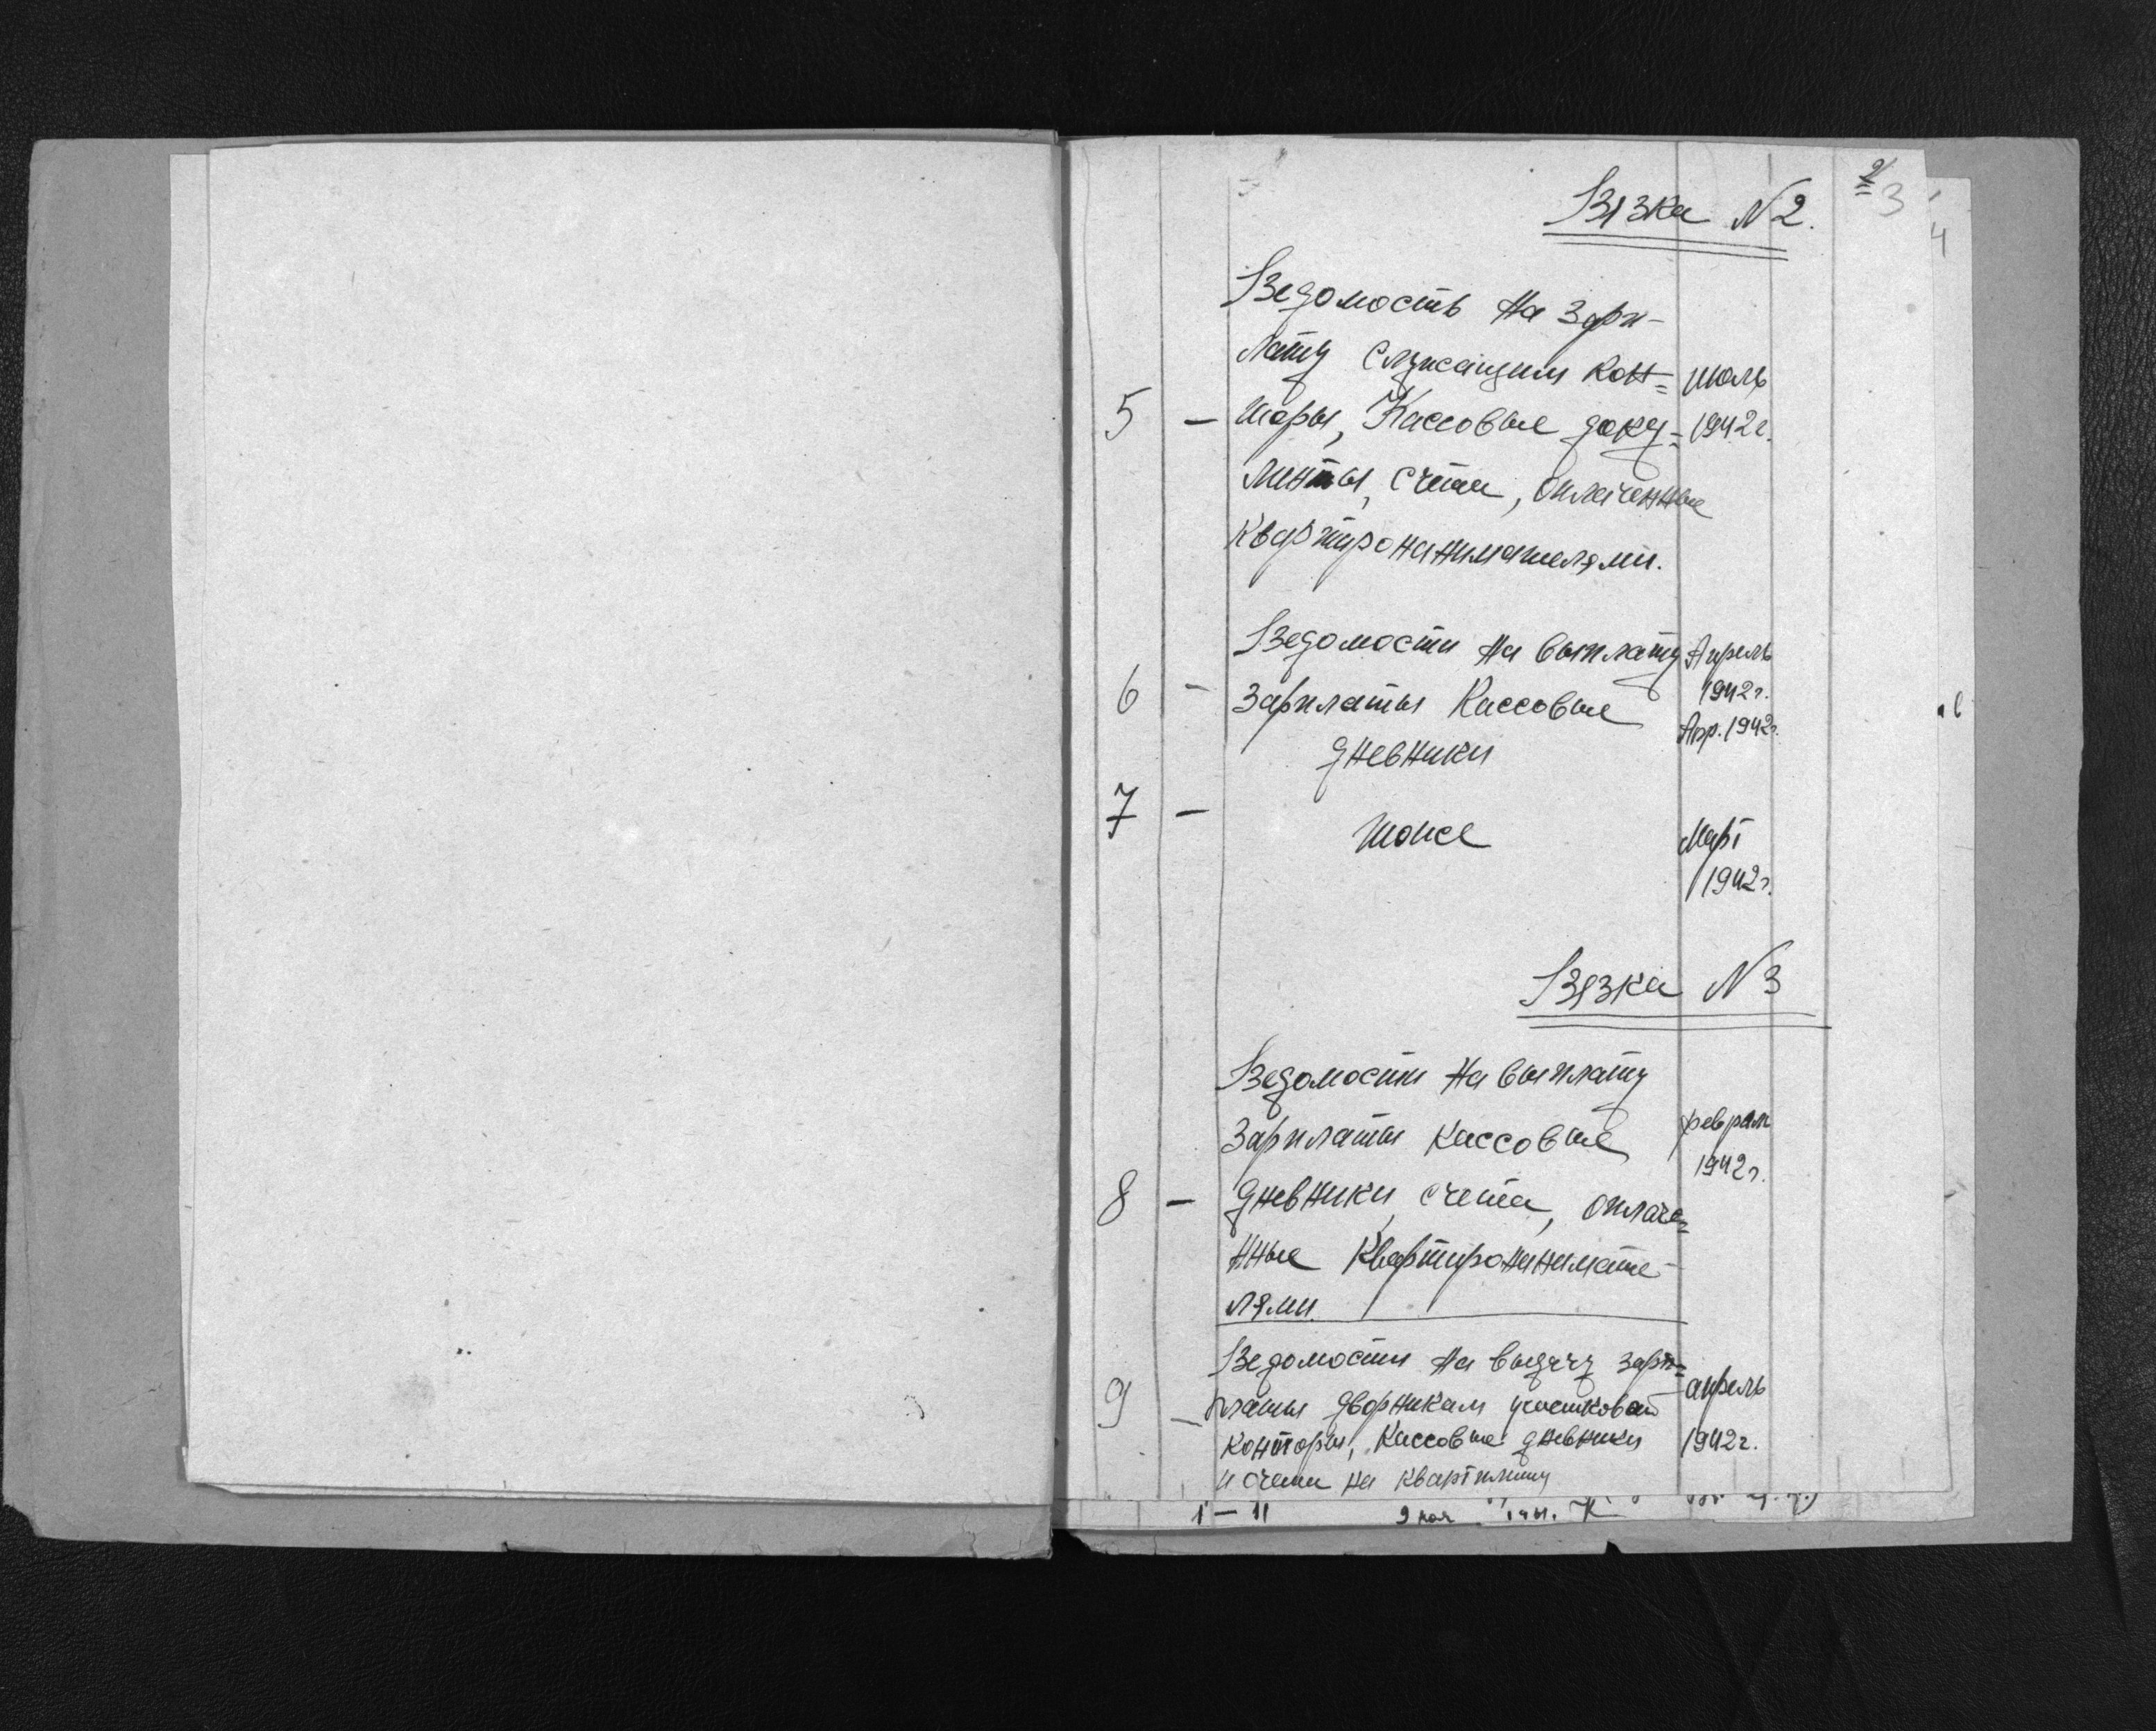 2
3
4
Вязка N 2.
Ведомость на зарп-
лату служащим кон= июль
5 - торы, Кассовые доку= 1942г.
менты, счета, оплаченные
квартиронанимателями.
Ведомости на выплату Апрель
6 - зарплаты Кассовые 1942г.
дневники Апр. 1942г.
7 - тоже Март
1942г.
Вязка N 3
Ведомости на выплату
зарплаты кассовые февраль
1942г.
8 - дневники, счета, оплаче=
нные квартиронанимате-
лями.
Ведомости на выдачу зарп=
9 - платы дворникам участковой апрель
конторы, кассовые дневники 1942г.
и счета на квартплату
1 - 11